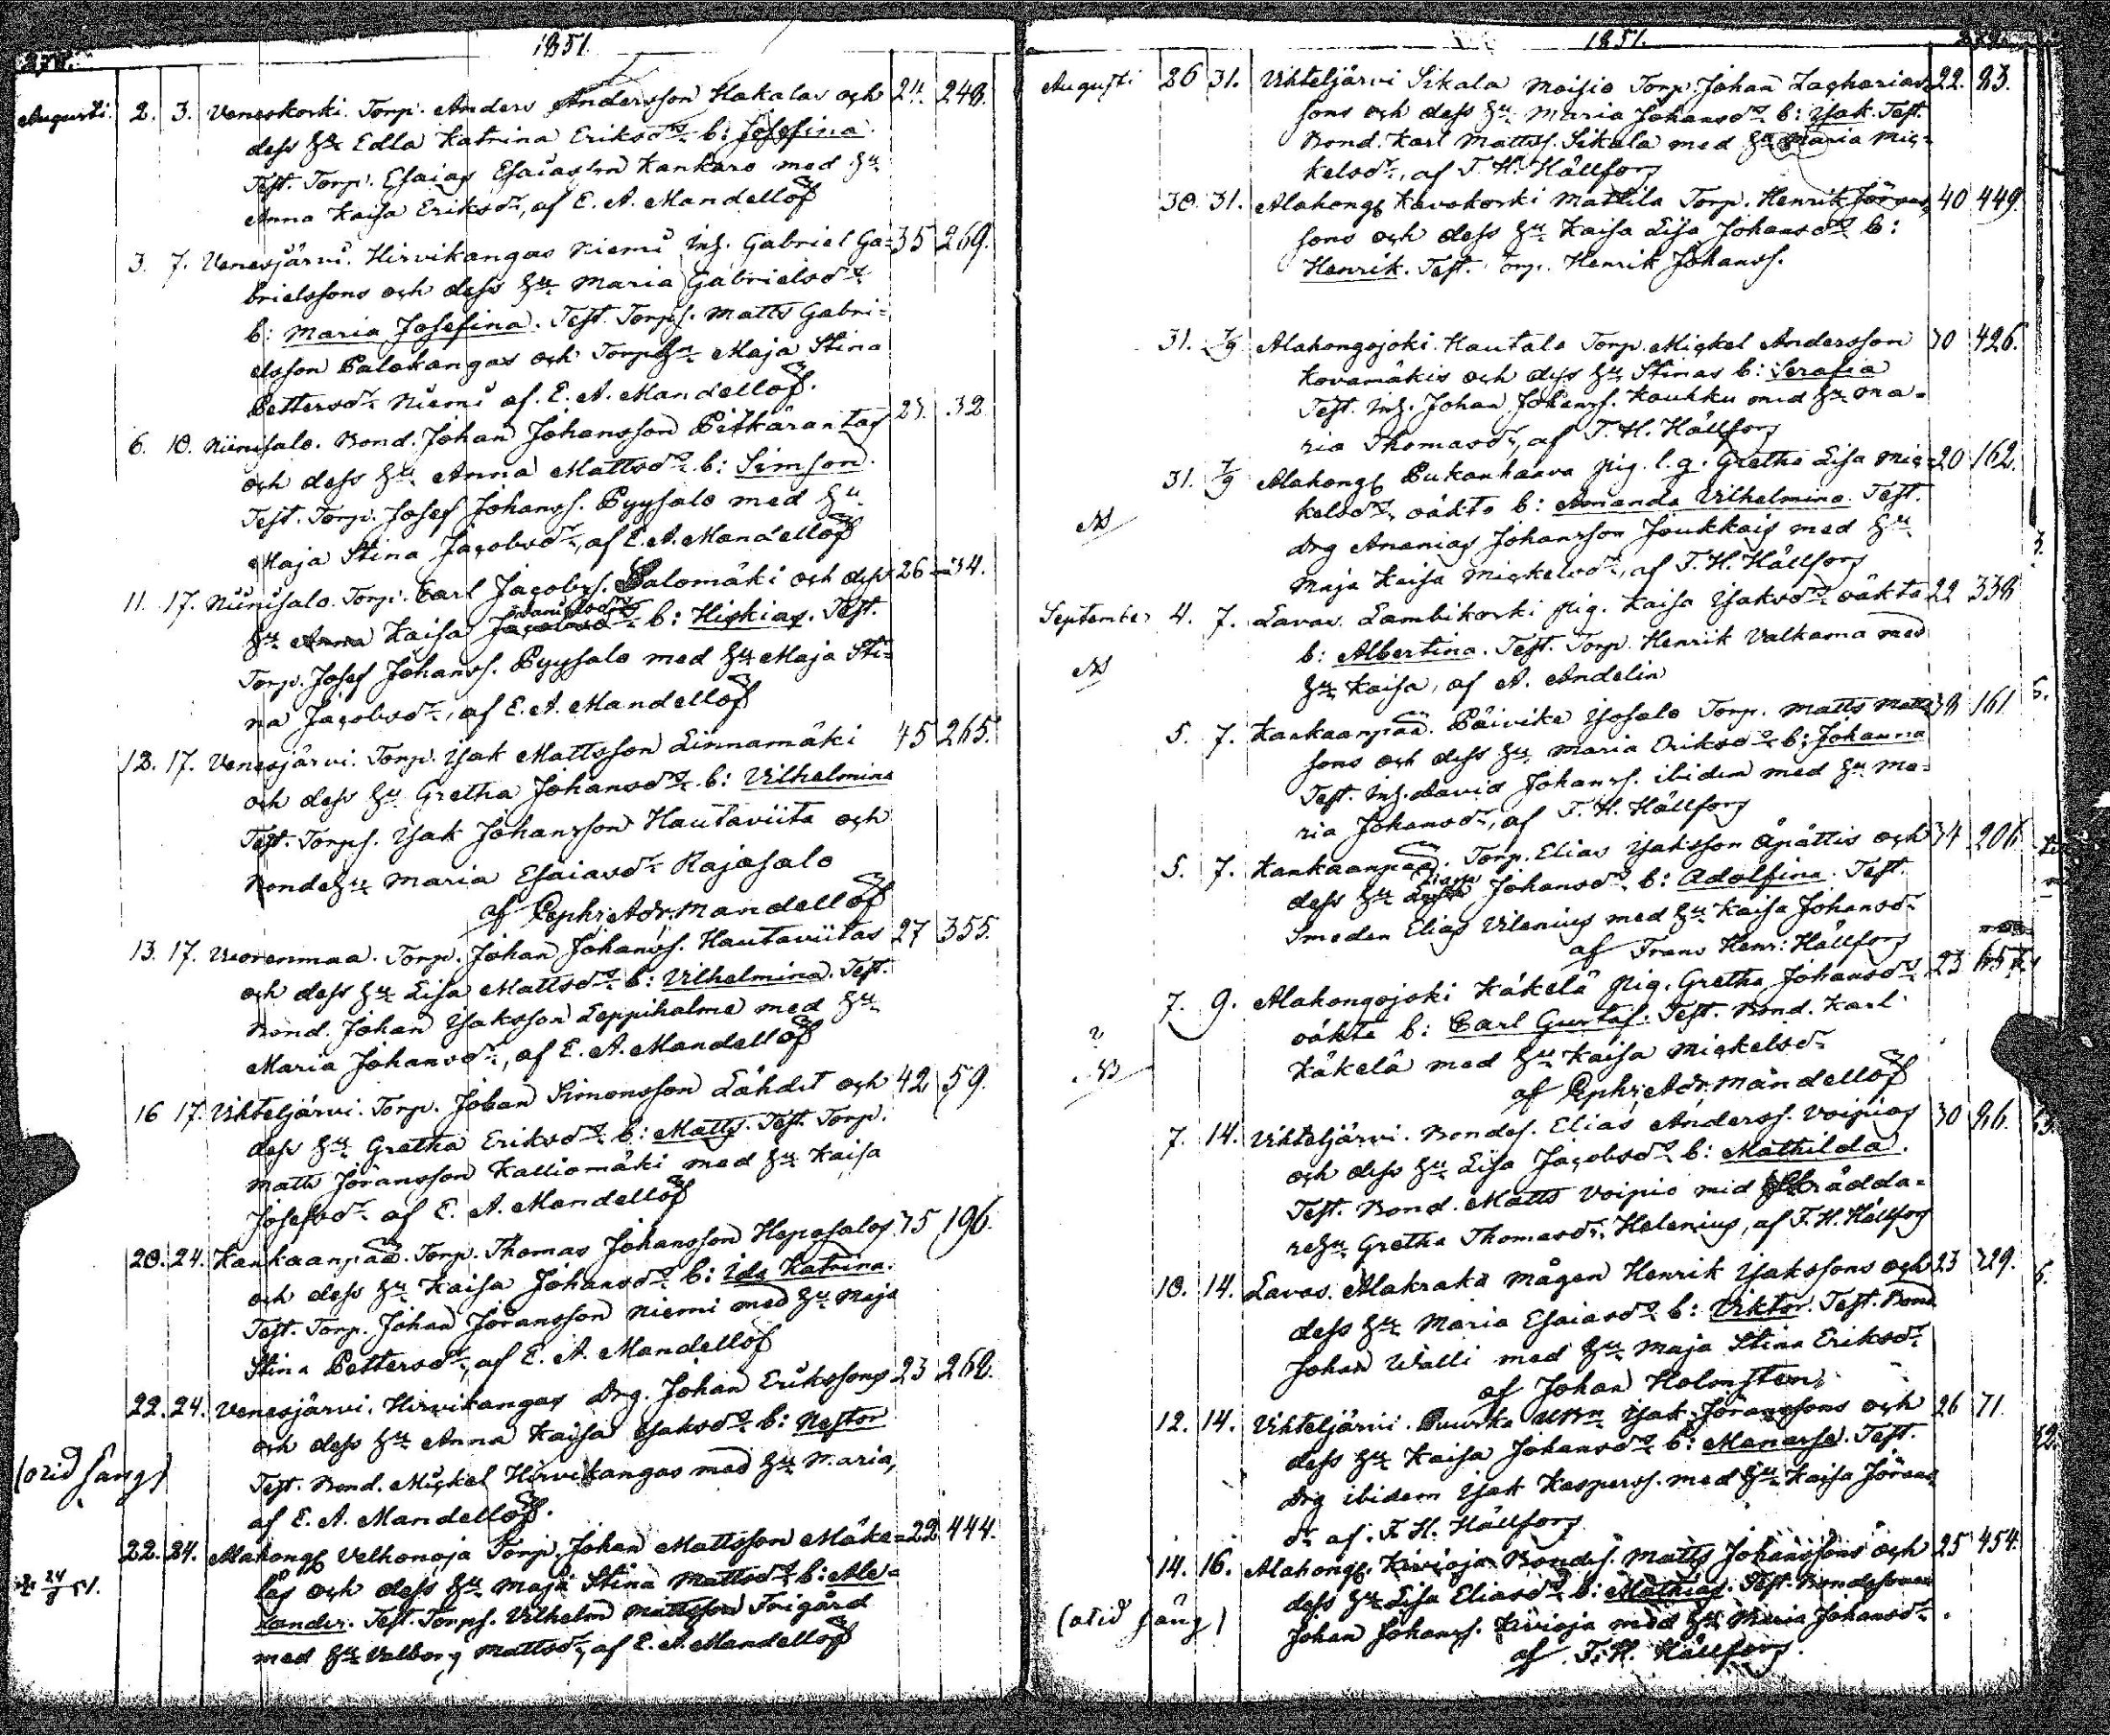 1851.
Augusti. 2. 3. Veneskorki. Torp. Anders Andersson Hakalas och 24. 248.
dess Hu Edla Katrina Eriksdr b: Josefina.
Test. Torp. Esaias Esaiasson Kankare med Hu
Anna Kaisa Eriksdr, af E. A. Mandellöf
3. 7. Venesjärvi. Hirvikangas Niemi Inh. Gabriel Ga= 35 269.
brielssons och dess Hu Maria Gabrielsdr
b: Maria Josefina. Test. Torps. Matts Gabri=
elsson Palokangas och TorpHu Maja Stina
Pettersdr Niemi af. E. A. Mandellöf.
6. 10. Niinisalo. Bond. Johan Johansson Pitkärantas 32
och dess Hu Anna Mattsdr b: Simson.
Test. Torp. Josef Johanss. Pyysalo med Hu
Maja Stina Jacobsdr, af E. A. Mandellöf
11. 17. Niinisalo. Torp. Carl Jacobss. Salomäki och dess 26 34.
Hu Anna Kaisa b: Hiskias. Test.
Torp. Josef Johanss. Pyysalo med Hu Maja Sti=
na Jacobsdr, af E. A. Mandellöf
12. 17. Venesjärvi. Torp. Isak Mattsson Linnamäki 45 265.
och dess Hu Gretha Johansdr b: Vilhelmina
Test. Torps. Isak Johansson Hautaviita och
BondeHu Maria Esaiasdr Rajasalo
af Ephr. Adr. Mandellöf
13. 17. Vuorenmaa. Torp. Johan Johanss. Hautaviitas 27 355.
och dess Hu Lisa Mattsdr b: Vilhelmina. Test.
Bond. Johan Isaksson Leppihalme med Hu
Maria Johansdr, af E. A. Mandellöf
16 17. Vihteljärvi. Torp. Johan Simonsson Lähdet och 42 59.
dess Hu Gretha Eriksdr b: Matts. Test. Torp.
Matts Jöransson Kalliomäki med Hu Kaisa
Josefsdr af E. A. Mandellöf
20. 24. Kankaanpää. Torp. Thomas Johansson Heposalos 35 196.
och dess Hu Kaisa Johansdr b: Ida Katrina.
Test. Torp. Johan Jöransson Niemi med Hu Maja
Stina Pettersdr, af E. A. Mandellöf
22. 24. Venesjärvi. Hirvikangas Drg. Johan Erikssons 23 268.
och dess Hu Anna Kaisa Isaksdr b: Nestor
(otid säng) Test. Bond. Mickel Hirvikangas med Hu Maria,
af E. A. Mandellöf.
22. 24. Alahongs Velhonoja Torp. Johan Mattsson Mäke= 22 444.
läs och dess Hu Maja Stina Mattsdr b: Ale=
xander. Test. Torps. Vilhelm Mattsson Frigård
med Hu Valborg Mattsdr, af E. A. Mandellöf
1851.
Augusti 26 31. Vihteljärvi Sikala Moisio Torp. Johan Zacharias= 22. 83.
sons och dess Hu Maria Johansdr b: Isak. Test.
Bond. Karl Mattss. Sikala med Hu Maria Mic=
kelsdr, af F. H. Hällfors
30. 31. Alahongs Kavokorki Mattila Torp. Henrik Jörans= 40 449.
sons och dess Hu Kaisa Lisa Johansdr b:
Henrik. Test. Torp. Henrik Johanss.
31. 7/9 Alahongojoki. Hautala Torp. Mickel Andersson 30 426.
Kovamäkis och dess Hu Stinas b: Serafia
Test. Inh. Johan Johanss. Kauhku med Hu Ma=
ria Thomasdr, af F. H. Hällfors
31. 7/9 Alahongs Pukanhaava Pig. l. g. Gretha Lisa Mic= 20 162.
kelsdr, oäkta b: Amanda Vilhelmina. Test.
Drg Ananias Johansson Joukkais med Hu
Maja Kaisa Mickelsdr, af F. H. Hällfors
September 4. 7. Lavas. Lambikorki Pig. Kaisa Isaksdr oäkta 22 338
b: Albertina. Test. Torp. Henrik Valkama med
Hu Kaisa, af A. Andelin
5. 7. Kankaanpää. Päivike Isosalo Torp. Matts Matts= 38 161
sons och dess Hu Maria Eriksdr b: Johanna
Test. Inh. David Johanss. ibidem med Hu Ma=
ria Johansdr, af F. H. Hällfors
5. 7. Kankaanpää. Torp. Elias Isaksson Äpättis och 34 206
dess Hu Johansdr b: Adolfina. Test.
Smeden Elias Vilenius med Hu Kaisa Johansdr
af Frans Henr: Hällfors
7. 9. Alahongojoki Käkelä Pig. Gretha Johansdr 23
oäkta b: Carl Gustaf. Test. Bond. Karl
Käkelä med Hu Kaisa Mickelsdr
af Ephr. Adr. Mandellöf
7. 14. Vihteljärvi. Bondes. Elias Anderss. Voipios 30 86.
och dess Hu Lisa Jacobsdr b: Mathilda.
Test. Bond. Matts Voipio med Skrädda=
reHu Gretha Thomasdr Helenius, af F. H. Hällfors
10. 14. Lavas. Alakraka Mågen Henrik Isakssons och 23 329.
dess Hu Maria Esaiasdr b: Viktor. Test. Bond
Johan Walli med Hu Maja Stina Eriksdr
af Johan Holmsten.
12. 14. Vihteljärvi. Puurka Isak Jöranssons och 26 71.
dess Hu Kaisa Johansdr b: Manasse. Test.
Drg ibidem Isak Kasperss. med Hu Kaisa Jörans=
dr af. F. H. Hällfors
14. 16. Alahongs. Kivioja Bondes. Matts Johanssons och 25 454.
dess Hu Lisa Eliasdr b: Mathias. Test. Bondesonen
(otid säng) Johan Johanss. Kivioja med Hu Maria Johansdr.
af F. H. Hällfors.